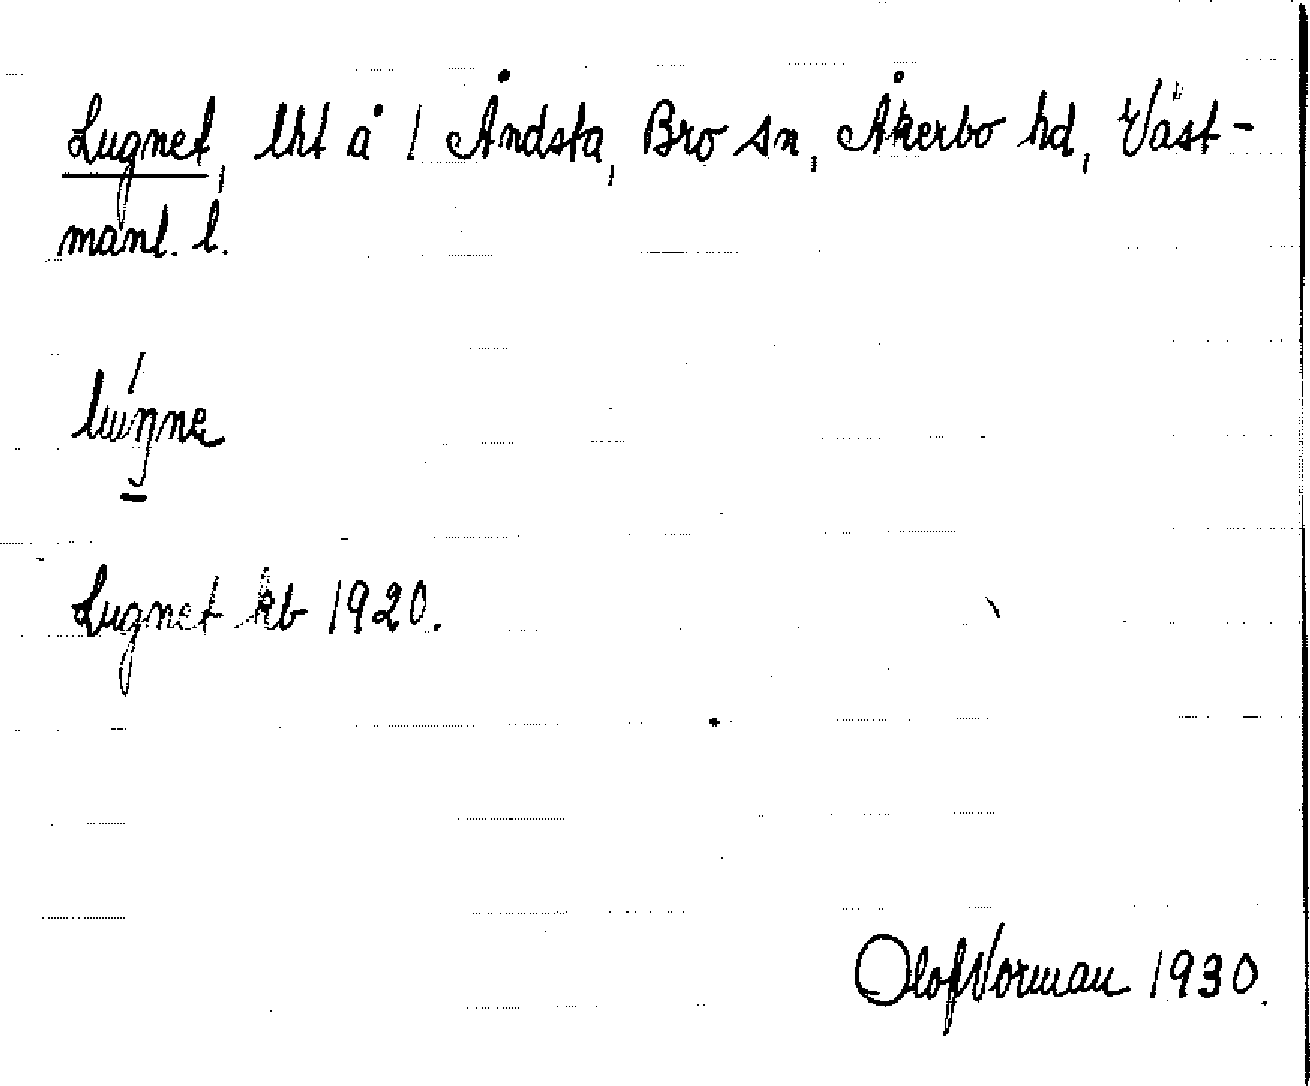 Lugnet, lht å 1 Åndsta, Bro sn, Åkerbo hd, Väst-
manl. l.
Lugnet kb 1920.
Olof Norman 1930.